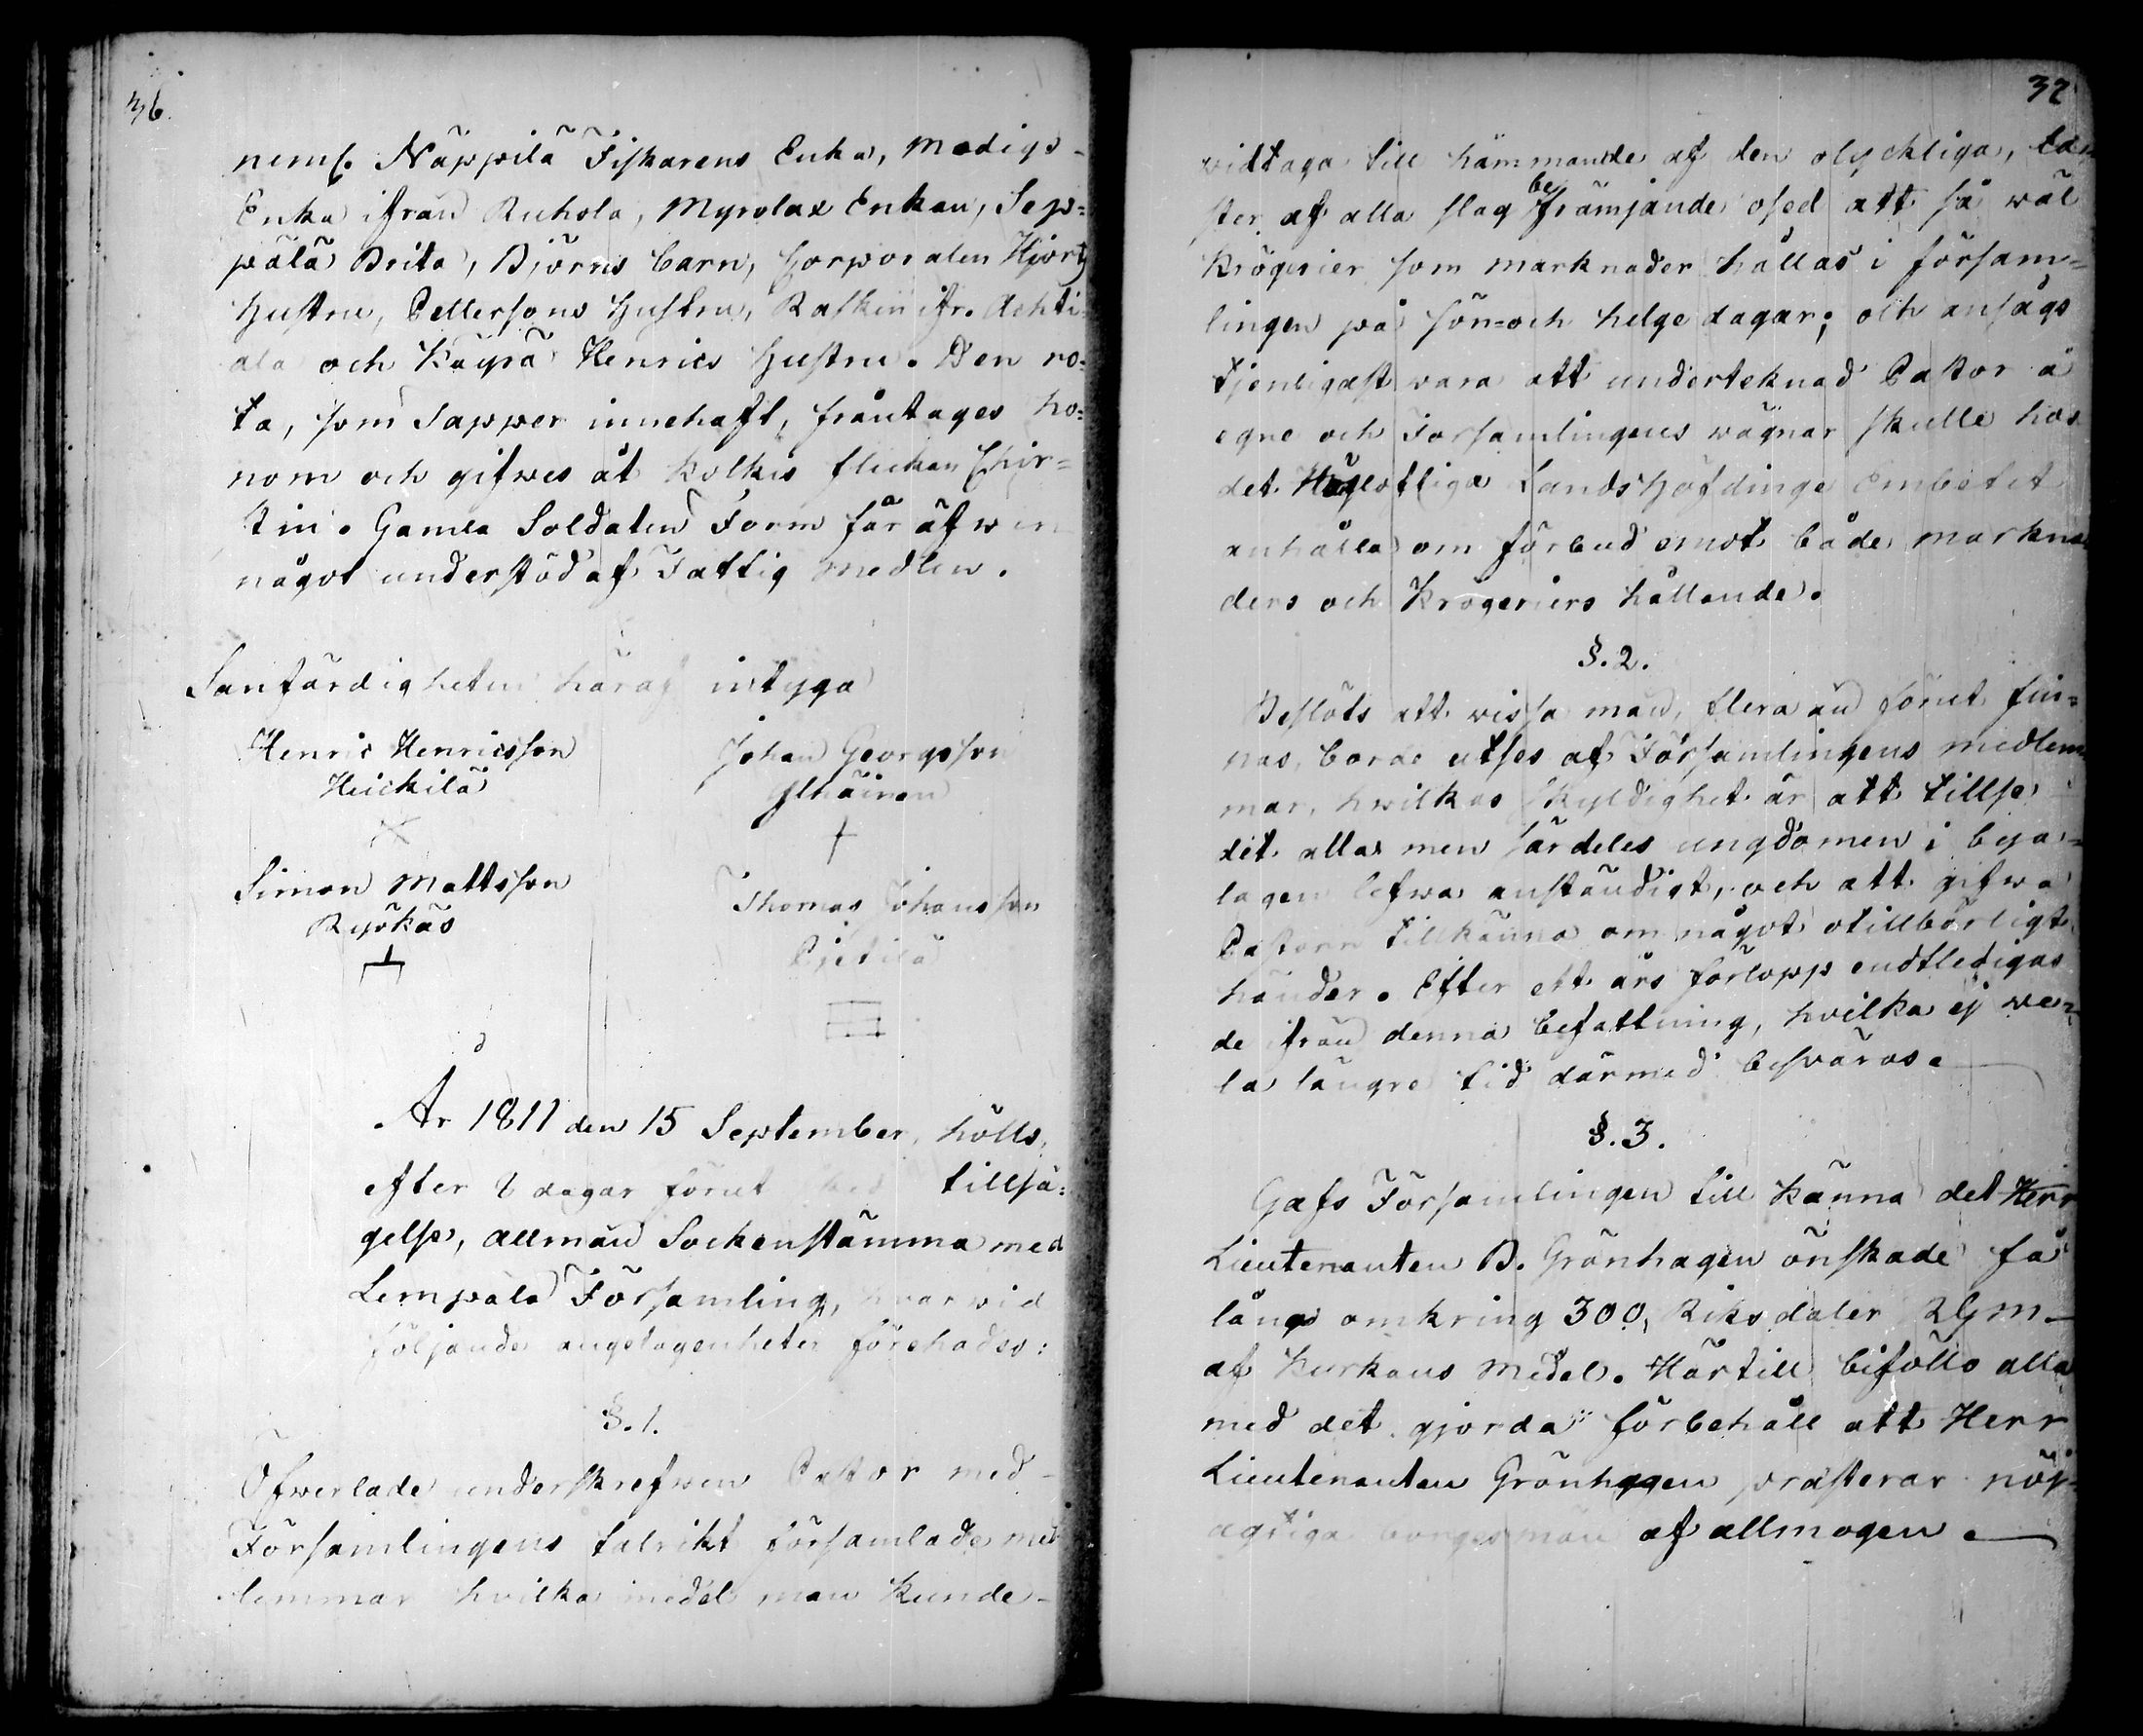 36.
neml. Näppilä Fiskarens Enka, Modigs-
Enka ifrån Ruhola, Myrolax Enkan, Sep=
pälä Brita, Björns barn, Corporalen Hjortz
hustru, Pettersons hustru, Raskin ifr. Achti
ala och Käyrä Henrics hustru. Den ro=
ta, som Sapper innehaft, fråntages ho=
nom och gifwes åt Kolkis flickan Chir=
stin. Gamla Soldaten Form får äfwen
något understöd af Fattig medlen.
Sanfärdigheten häraf intyga
Henric Henricsson
Heickilä
Johan Georgsson
Ylhäinen
Simon Mattsson
Ryökäs
Thomas Johansson
Pietilä
År 1811 den 15 September, hölls,
efter 8 dagar förut tillsä=
gelse, allmän Sockenstämma med
Lempälä Församling, hvarvid
följande angelägenheter förehades:
§. 1.
Öfwerlade underskrefwen Pastor med
Församlingens talrikt församlade med
lemmar hvilka medel man kunde-
37
vidtaga till hämmande af den olyckliga, las
ter af alla slag befrämjande osed att så wäl
Krögerier som marknader hållas i försam=
lingen på sön=och helge dagar; och ansågs
tjenligast vara att underteknad Pastor å
egne och Församlingens wägnar skulle hos
det Höglofliga Landshöfdinge Embetet
anhålla om förbud emot både markna
ders och Krögeriers hållande.
§. 2.
Beslöts att vissa män, flera än förut fin=
nas, borde utses af Församlingens medlem
mar, hwilkas skyldighet är att tillse
det alla men särdeles ungdomen i bya=
lagen lefwa anständigt, och att gifwa
Pastorn tillkänna om något otillbörligt
händer. Efter ett års förlopp endtledigas
de ifrån denna befattning, hvilka ej we=
la längre tid därmed besväras.
§. 3.
Gafs Församlingen till känna det Herr
Lieutenanten B. Grönhagen önskade få
låna omkring 300 Riksdaler RGm
af Kyrkans medel. Härtill biföllo alla
med det gjorda förbehåll att Herr
Lieutenanten Grönhagen præsterar nöj=
agtiga borgesmän af allmogen.